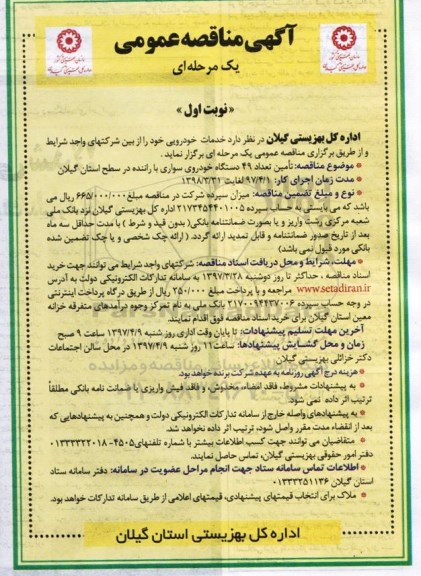 آگهی مناقصه عمومی
یک مرحله‌ای
«نوبت اول»
اداره کل بهزیستی گیلان در نظر دارد خدمات خودرویی خود را از بین شرکتهای واجد شرایط
و از طریق برگزاری مناقصه عمومی یک مرحله ای برگزار نماید.
موضوع مناقصه: تأمین تعداد ۴۹ دستگاه خودروی سواری با راننده در سطح استان گیلان
مدت زمان اجرای کار: ۹۷/۴/۱ لغایت ۱۳۹۸/۳/۳۱
نوع و مبلغ تضمین مناقصه: میزان سپرده شرکت در مناقصه مبلغ ۶۶۵/۰۰۰/۰۰۰ ریال می
باشد که می بایستی به حساب سپرده ۲۱۷۳۴۵۴۴۰۱۰۰۵ اداره کل بهزیستی گیلان نزد بانک ملی
شعبه مرکزی رشت واریز و یا بصورت ضمانتنامه بانکی( بدون قید و شرط ) با مدت حداقل سه ماه
بعد از تاریخ صدور ضمانتنامه و قابل تمدید ارائه گردد. ( ارائه چک شخصی و یا چک تضمین شده
بانکی مورد قبول نمی باشد)
مهلت، شرایط و محل دریافت اسناد مناقصه: شرکتهای واجد شرایط می توانند جهت خرید
اسناد مناقصه ، حداکثر تا روز دوشنبه ۱۳۹۷/۳/۲۸ به سامانه تدارکات الکترونیکی دولت به آدرس
www.setadiran.ir مراجعه و با پرداخت مبلغ ۲۵۰/۰۰۰ ریال از طریق درگاه پرداخت اینترنتی
در وجه حساب سپرده ۲۱۷۰۰۹۴۴۳۷۰۰۶ بانک ملی به نام تمرکز وجوه درآمدهای متفرقه خزانه
معین استان گیلان برای خرید اسناد مناقصه فوق اقدام نمایند.
آخرین مهلت تسلیم پیشنهادات: تا پایان وقت اداری روز شنبه ۱۳۹۷/۴/۹ ساعت ۹ صبح
زمان و محل گشایش پیشنهادها: ساعت ۱۱ روز شنبه ۱۳۹۷/۴/۹ در محل سالن اجتماعات
دکتر خزائلی بهزیستی گیلان
هزینه درج آگهی روزنامه به عهده شرکت برنده خواهد بود.
به پیشنهادات مشروط، فاقد امضاء، مخدوش، و فاقد فیش واریزی یا ضمانت نامه بانکی مطلقاً
ترتیب اثر داده نمی شود.
به پیشنهادهای واصله خارج از سامانه تدارکات الکترونیکی دولت و همچنین به پیشنهادهایی که
بعد از انقضاء مدت مقرر واصل شود، ترتیب اثر داده نخواهد شد.
متقاضیان می توانند جهت کسب اطلاعات بیشتر با شماره تلفنهای ۴۵۰۵-۰۱۳۳۳۳۲۲۰۱۸
دفتر امور حقوقی بهزیستی گیلان، تماس حاصل نمایند.
اطلاعات تماس سامانه ستاد جهت انجام مراحل عضویت در سامانه: دفتر سامانه ستاد
استان گیلان ۰۱۳۳۳۲۵۱۱۳۶
ملاک برای انتخاب قیمتهای پیشنهادی، قیمتهای اعلامی از طریق سامانه تدارکات خواهد بود.
اداره کل بهزیستی استان گیلان